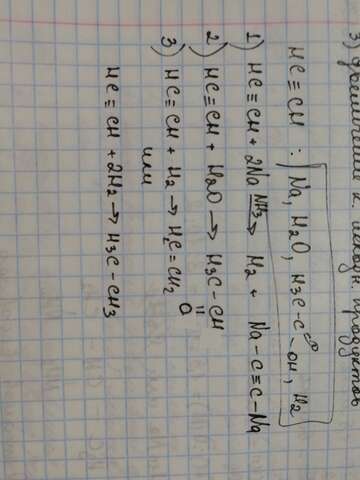 3)
HC≡CH : Na, H2O, H3C-C=O-OH, H2
1) HC≡CH + 2Na NH3→ H2 + Na-C≡C-Na
2) HC≡CH + H2O → H3C-CH=O
3) HC≡CH + H2 → H2C=CH2
или
HC≡CH + 2H2 → H3C-CH3